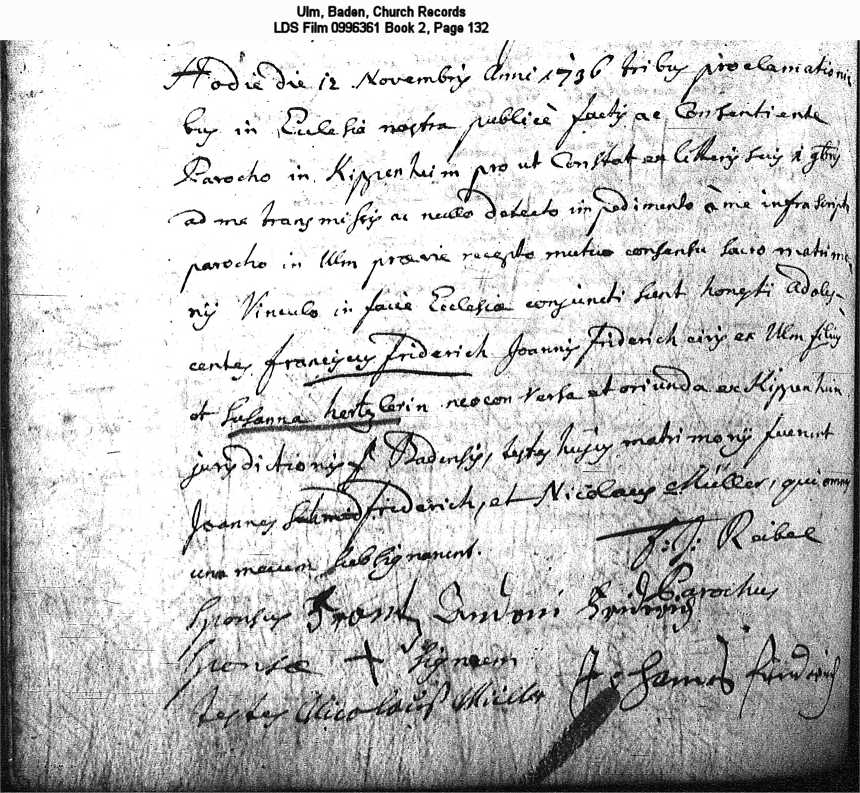 Ulm, Baden, Church Records
LDS Film 0996361 Book 2, Page 132
Hodie die 12 Novembris Anni 1736 tribus proclamationi
bus in Ecclesia nostra publice factis ac Consentiente
Parocho in Kippenheim prout Constat ex litteris suis
ad me transmissis ac nullo detecto impedimento à me infrascripto
parocho in Ulm praevie recepto mutuo consensu sacro matrimo
nij Vinculo in facie Ecclesiae conjuncti sunt honesti adoles-
centes franciscus friderich Joannis friderich civis ex Ulm filius
et Susanna hertzlerin neoconversa et oriunda ex Kippenheim
jurisdictionis Badensis, testes hujus matrimonij fuerunt
Joannes friderich, et Nicolaus Müller, qui omnes
una mecum subsignarunt.
F: J: Reibel
Parochus
Sponsus Frantz Andoni Fridrich
Sponsae + Signum
testes Nicolaus Müller Johannes